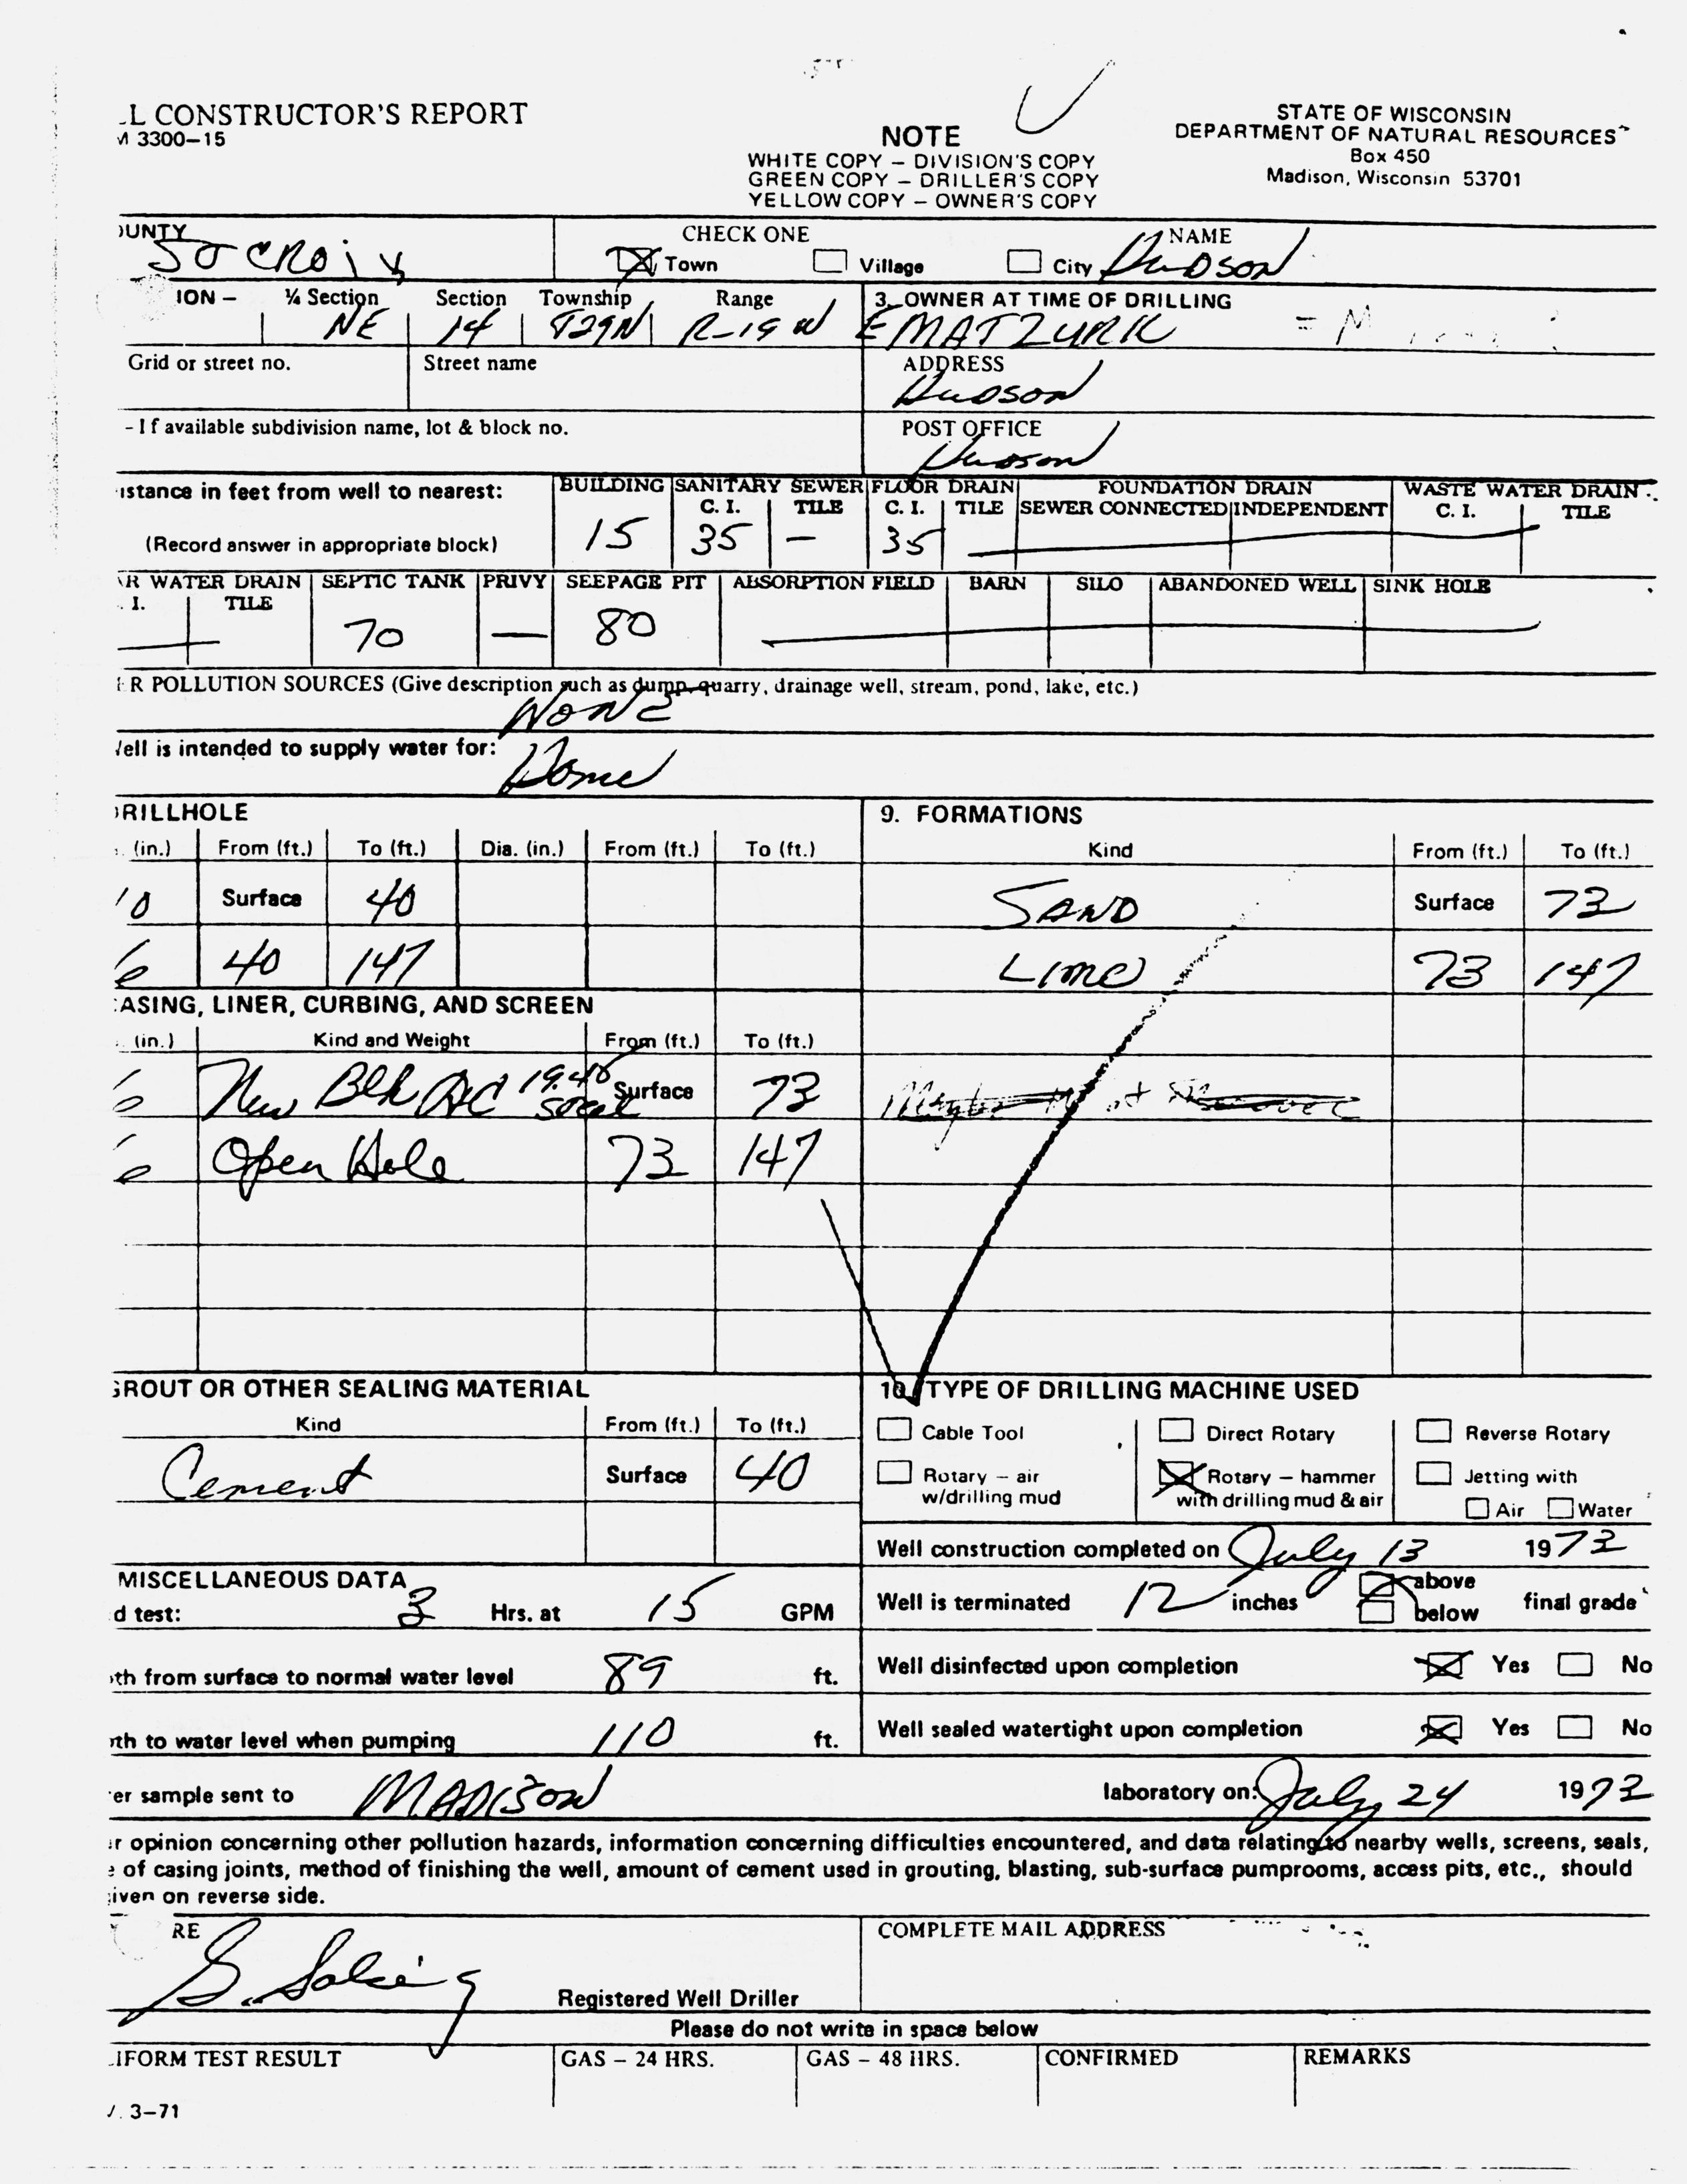 L CONSTRUCTOR'S REPORT
M 3300-15
NOTE
WHITE COPY – DIVISION'S COPY
GREEN COPY – DRILLER'S COPY
YELLOW COPY – OWNER'S COPY
STATE OF WISCONSIN
DEPARTMENT OF NATURAL RESOURCES
Box 450
Madison, Wisconsin 53701
OUNTY CHECK ONE NAME
ST CROIX Town Village City HUDSON
ION – ¼ Section Section Township Range 3. OWNER AT TIME OF DRILLING
NE 14 T29N R-19 W E MATZURK
Grid or street no. Street name ADDRESS
Hudson
- If available subdivision name, lot & block no. POST OFFICE
Hudson
istance in feet from well to nearest: BUILDING SANITARY SEWER FLOOR DRAIN FOUNDATION DRAIN WASTE WATER DRAIN
C. I. TILE C. I. TILE SEWER CONNECTED INDEPENDENT C. I. TILE
(Record answer in appropriate block) 15 35 – 35
R WATER DRAIN SEPTIC TANK PRIVY SEEPAGE PIT ABSORPTION FIELD BARN SILO ABANDONED WELL SINK HOLE
. I. TILE
70 — 80
R POLLUTION SOURCES (Give description such as dump, quarry, drainage well, stream, pond, lake, etc.)
NONE
Well is intended to supply water for:
Home
DRILLHOLE 9. FORMATIONS
(in.) From (ft.) To (ft.) Dia. (in.) From (ft.) To (ft.) Kind From (ft.) To (ft.)
10 Surface 40 SAND Surface 73
6 40 147 Lime 73 147
CASING, LINER, CURBING, AND SCREEN
(in.) Kind and Weight From (ft.) To (ft.)
6 New Blk 19.40 Surface 73
6 Open Hole 73 147
GROUT OR OTHER SEALING MATERIAL 10. TYPE OF DRILLING MACHINE USED
Kind From (ft.) To (ft.) Cable Tool Direct Rotary Reverse Rotary
Cement Surface 40 Rotary – air w/drilling mud Rotary – hammer with drilling mud & air Jetting with
Air Water
Well construction completed on July 13 1973
MISCELLANEOUS DATA
d test: 3 Hrs. at 15 GPM Well is terminated 12 inches above below final grade
th from surface to normal water level 89 ft. Well disinfected upon completion Yes No
th to water level when pumping 110 ft. Well sealed watertight upon completion Yes No
er sample sent to MADISON laboratory on: July 24 1973
r opinion concerning other pollution hazards, information concerning difficulties encountered, and data relating to nearby wells, screens, seals,
e of casing joints, method of finishing the well, amount of cement used in grouting, blasting, sub-surface pumprooms, access pits, etc., should
iven on reverse side.
RE COMPLETE MAIL ADDRESS
Registered Well Driller
Please do not write in space below
LIFORM TEST RESULT GAS – 24 HRS. GAS – 48 HRS. CONFIRMED REMARKS
V. 3–71